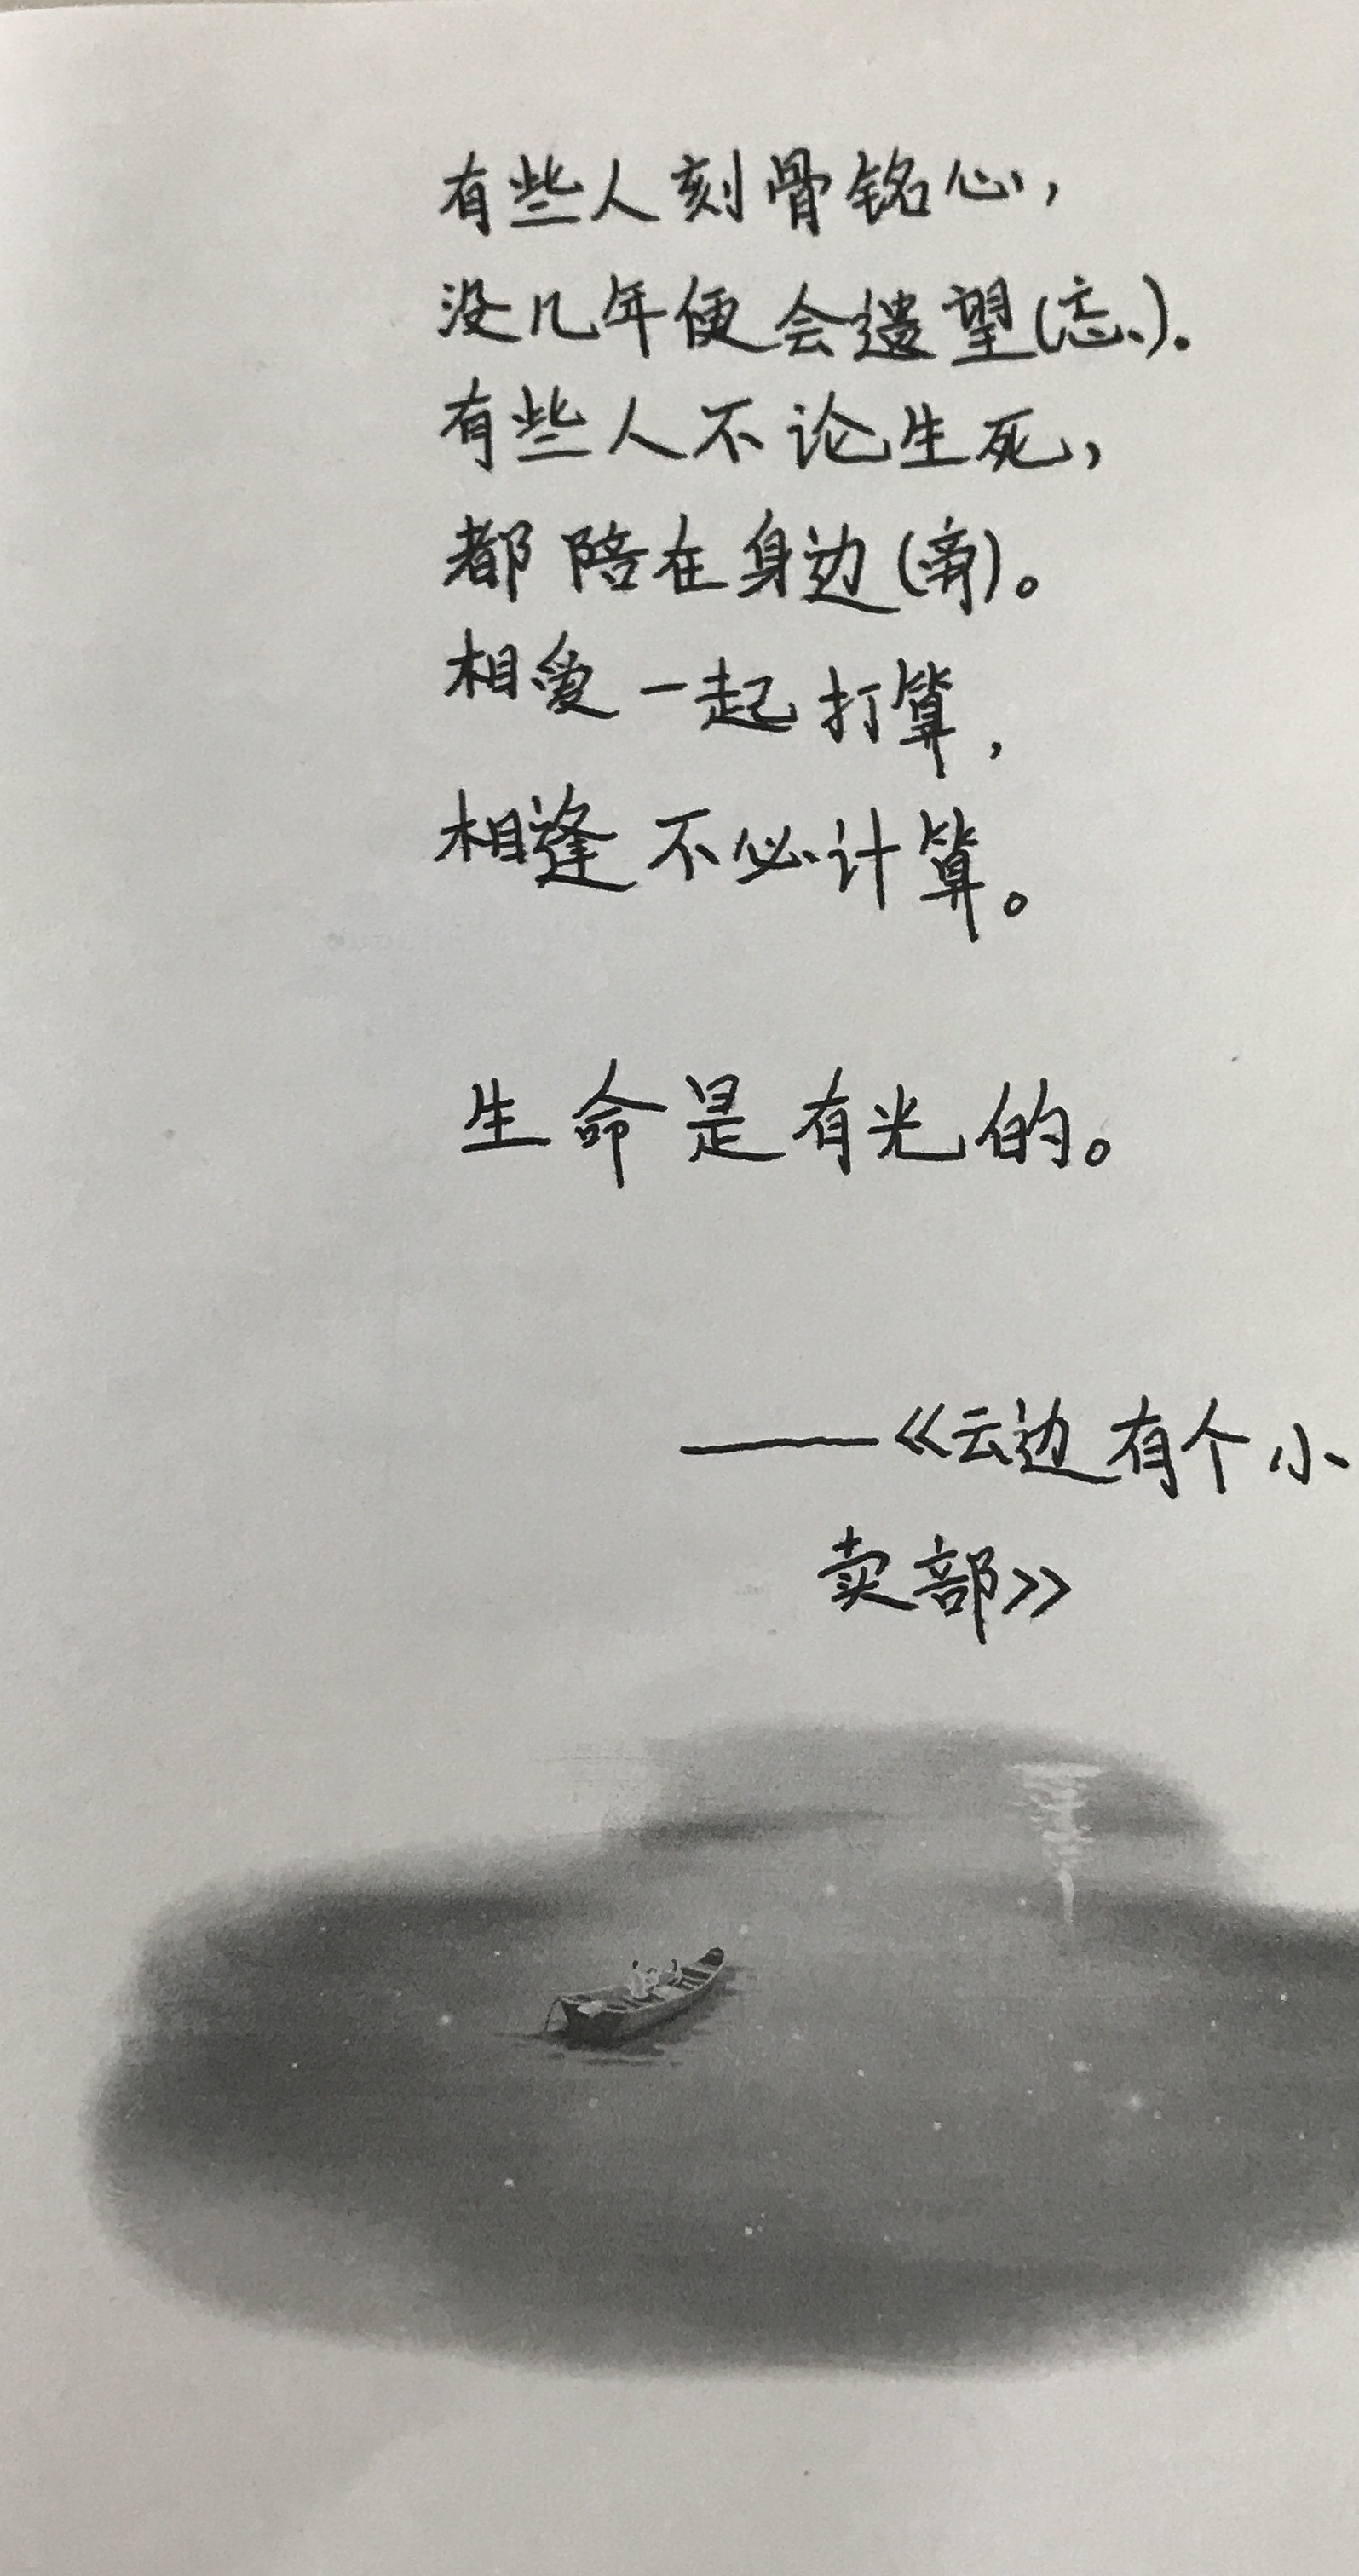 有些人刻骨铭心,
没几年便会遗望(忘).
有些人不论生死,
都陪在身边(旁)。
相爱一起打算,
相逢不必计算。
生命是有光的。
——《云边有个小
卖部》